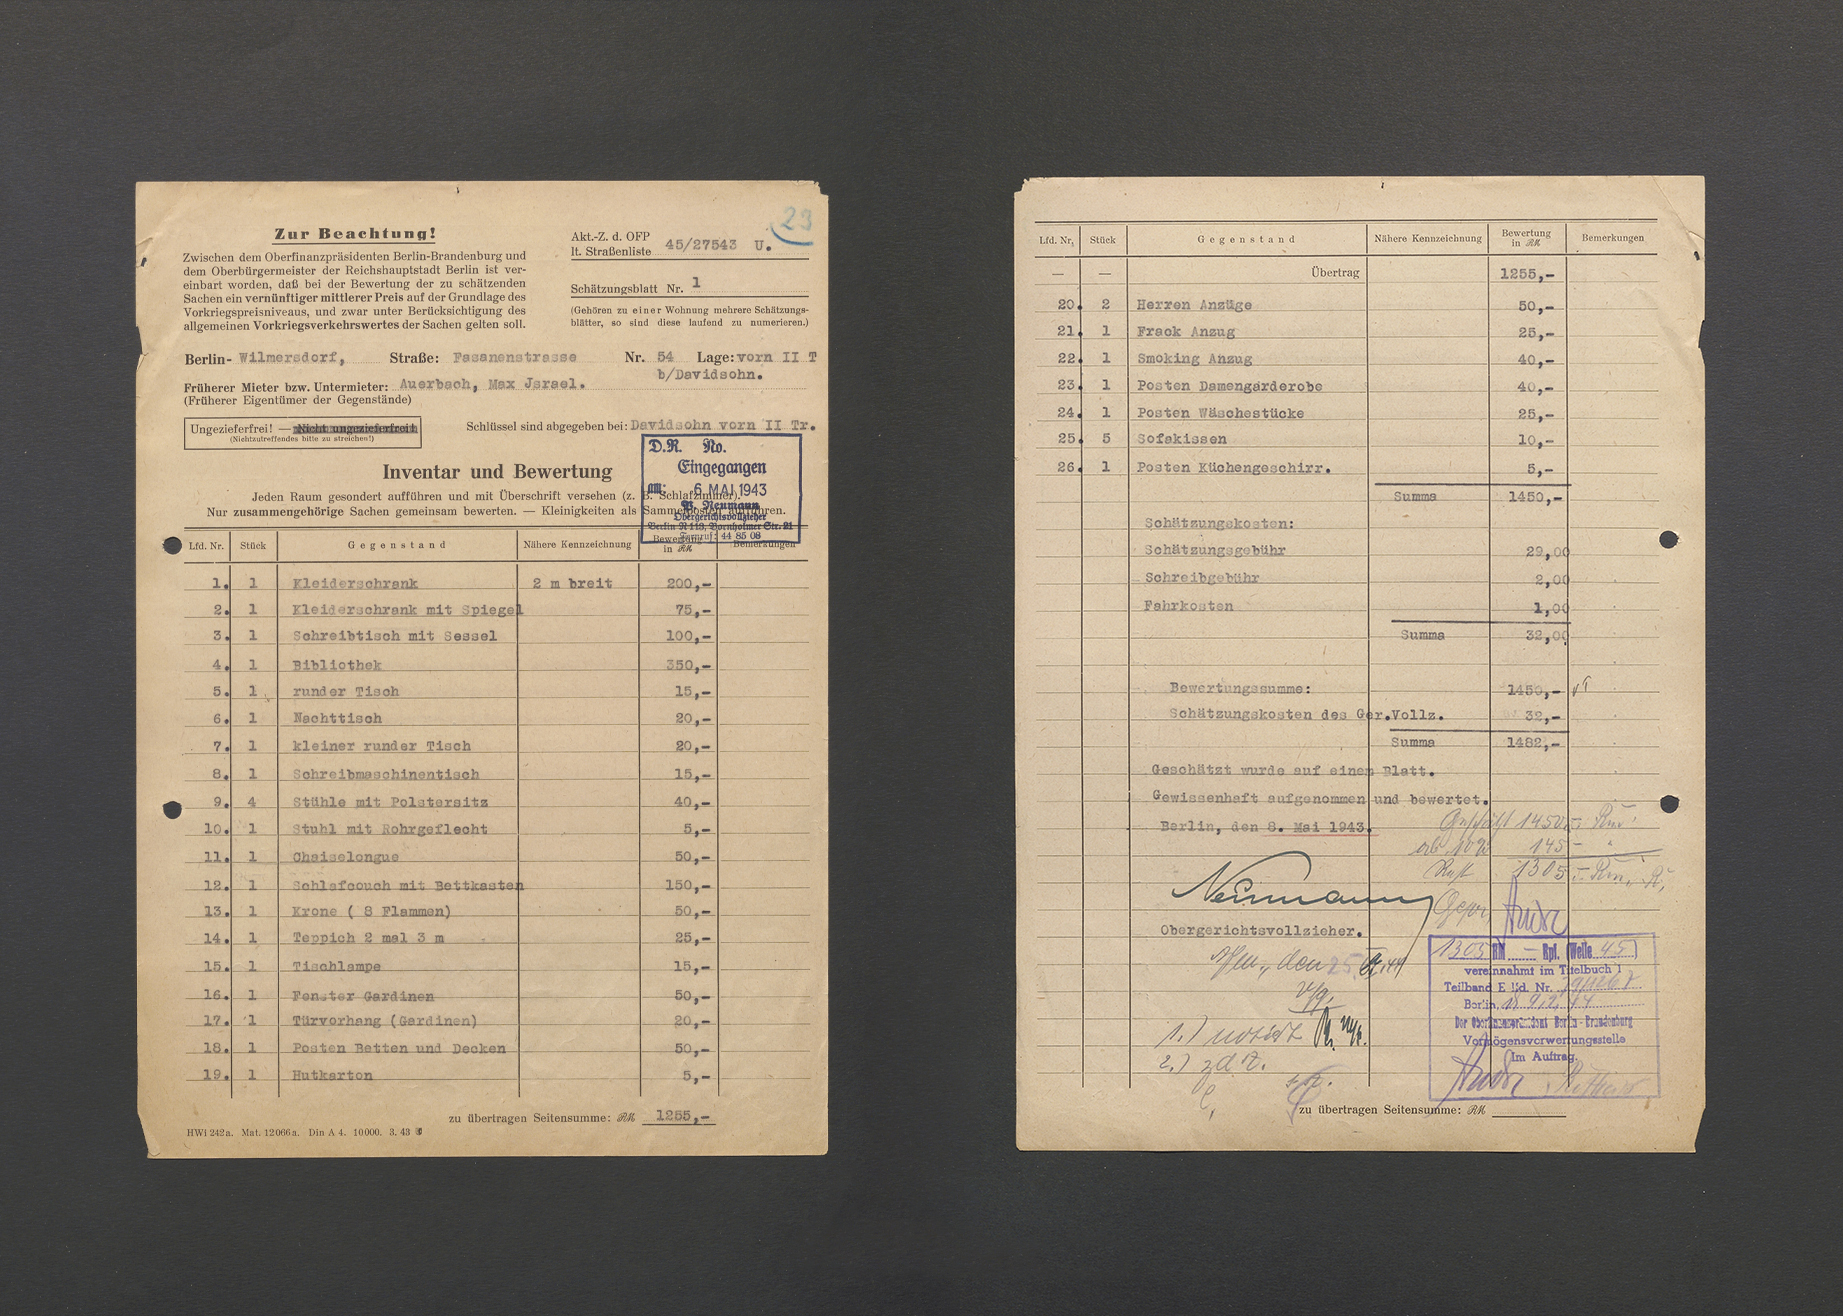 23
Zur Beachtung!
Zwischen dem Oberfinanzpräsidenten Berlin-Brandenburg und
dem Oberbürgermeister der Reichshauptstadt Berlin ist ver-
einbart worden, daß bei der Bewertung der zu schätzenden
Sachen ein vernünftiger mittlerer Preis auf der Grundlage des
Vorkriegspreisniveaus, und zwar unter Berücksichtigung des
allgemeinen Vorkriegsverkehrswertes der Sachen gelten soll.
Akt.-Z. d. OFP
lt. Straßenliste 45/27543 U.
Schätzungsblatt Nr. 1
(Gehören zu einer Wohnung mehrere Schätzungs-
blätter, so sind diese laufend zu numerieren.)
Berlin- Wilmersdorf, Straße: Fasanenstrasse Nr. 54 Lage: vorn II T
b/Davidsohn.
Früherer Mieter bzw. Untermieter: Auerbach, Max Jsrael.
(Früherer Eigentümer der Gegenstände)
Ungezieferfrei! — Nicht ungezieferfrei!
(Nichtzutreffendes bitte zu streichen!)
Schlüssel sind abgegeben bei: Davidsohn vorn II Tr.
D.R. No.
Eingegangen
am: 6. MAI 1943
Neumann
Obergerichtsvollzieher
Berlin N 113, Bornholmer Str. 21
Fernruf: 44 85 08
Inventar und Bewertung
Jeden Raum gesondert aufführen und mit Überschrift versehen (z. B. Schlafzimmer).
Nur zusammengehörige Sachen gemeinsam bewerten. — Kleinigkeiten als Sammelposten aufführen.
Lfd. Nr. Stück Gegenstand Nähere Kennzeichnung Bewertung in RM Bemerkungen
1. 1 Kleiderschrank 2 m breit 200,-
2. 1 Kleiderschrank mit Spiegel 75,-
3. 1 Schreibtisch mit Sessel 100,-
4. 1 Bibliothek 350,-
5. 1 runder Tisch 15,-
6. 1 Nachttisch 20,-
7. 1 kleiner runder Tisch 20,-
8. 1 Schreibmaschinentisch 15,-
9. 4 Stühle mit Polstersitz 40,-
10. 1 Stuhl mit Rohrgeflecht 5,-
11. 1 Chaiselongue 50,-
12. 1 Schlafcouch mit Bettkasten 150,-
13. 1 Krone ( 8 Flammen) 50,-
14. 1 Teppich 2 mal 3 m 25,-
15. 1 Tischlampe 15,-
16. 1 Fenster Gardinen 50,-
17. 1 Türvorhang (Gardinen) 20,-
18. 1 Posten Betten und Decken 50,-
19. 1 Hutkarton 5,-
zu übertragen Seitensumme: RM 1255,-
HWi 242a. Mat. 12066a. Din A 4. 10000. 3. 43
Lfd. Nr. Stück Gegenstand Nähere Kennzeichnung Bewertung in RM Bemerkungen
— — Übertrag 1255,-
20. 2 Herren Anzüge 50,-
21. 1 Frack Anzug 25,-
22. 1 Smoking Anzug 40,-
23. 1 Posten Damengarderobe 40,-
24. 1 Posten Wäschestücke 25,-
25. 5 Sofakissen 10,-
26. 1 Posten Küchengeschirr. 5,-
Summa 1450,-
Schätzungskosten:
Schätzungsgebühr 29,00
Schreibgebühr 2,00
Fahrkosten 1,00
Summa 32,00
Bewertungssumme: 1450,-
Schätzungskosten des Ger.Vollz. 32,-
Summa 1482,-
Geschätzt wurde auf einem Blatt.
Gewissenhaft aufgenommen und bewertet.
Berlin, den 8. Mai 1943.
Geschätzt 1450,- Rm.
ab 10% 145 - "
Rest 1305,- Rm.
Neumann
Obergerichtsvollzieher.
1305 RM — Rpf. (Welle 45)
vereinnahmt im Titelbuch 1
Teilband E lfd. Nr.
Berlin,
Der Oberfinanzpräsident Berlin-Brandenburg
Vermögensverwertungsstelle
Im Auftrag.
Vfg.
1.) notiert
2.) z.d.A.
zu übertragen Seitensumme: RM